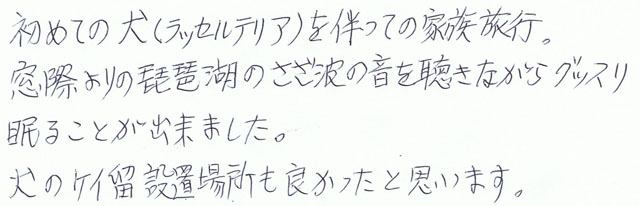 初めての犬(ラッセルテリア)を伴っての家族旅行。
窓際よりの琵琶湖のさざ波の音を聴きながらグッスリ
眠ることが出来ました。
犬のケイ留設置場所も良かったと思います。